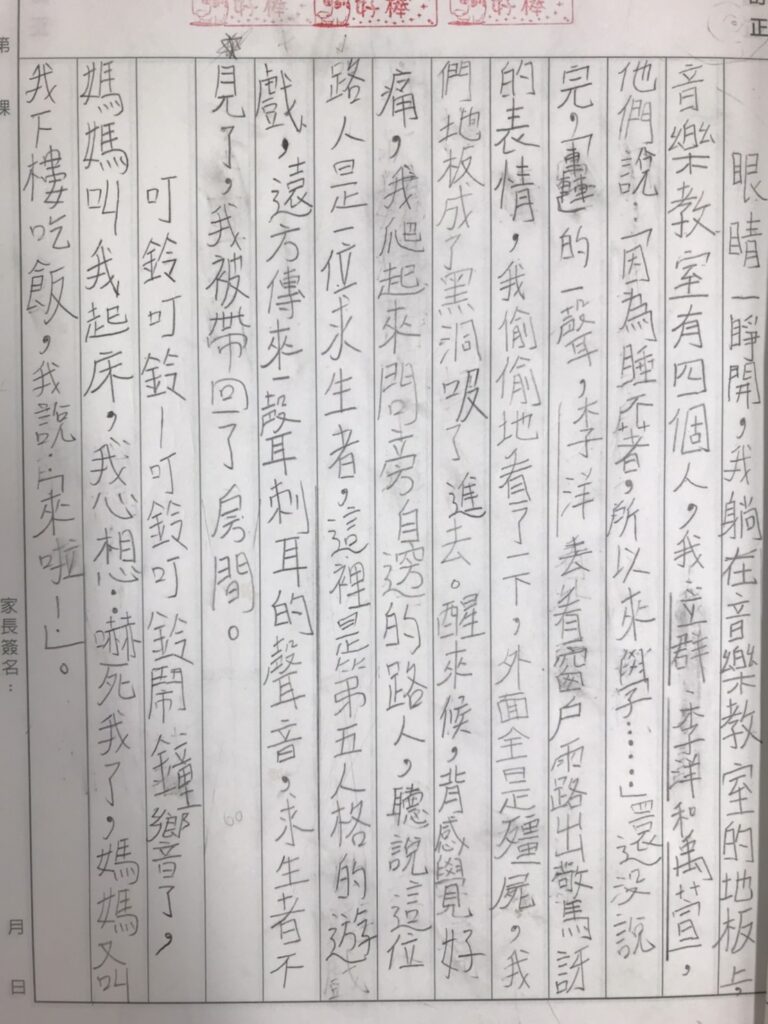 好棒 好棒 好棒
正
第
課
眼睛一睜開,我躺在音樂教室的地板上,
音樂教室有四個人,我、立群、李洋和萬萱,
他們說:「因為睡不著,所以來學……」還沒說
完,「轟」的一聲,李洋丟着窗戶雨路出敬馬訝
的表情,我偷偷地看了一下,外面全是殭屍,我
們地板成了黑洞吸了進去。醒來候,背感覺好
痛,我爬起來問旁邊的路人,聽說這位
路人是一位求生者,這裡是第五人格的遊
戲,遠方傳來一聲刺耳的聲音,求生者不
見了,我被帶回了房間。
叮鈴叮鈴—叮鈴叮鈴鬧鐘響了,
媽媽叫我起床,我心想:嚇死我了,媽媽又叫
我下樓吃飯,我說:「來啦—」。
家長簽名:
月
日
60